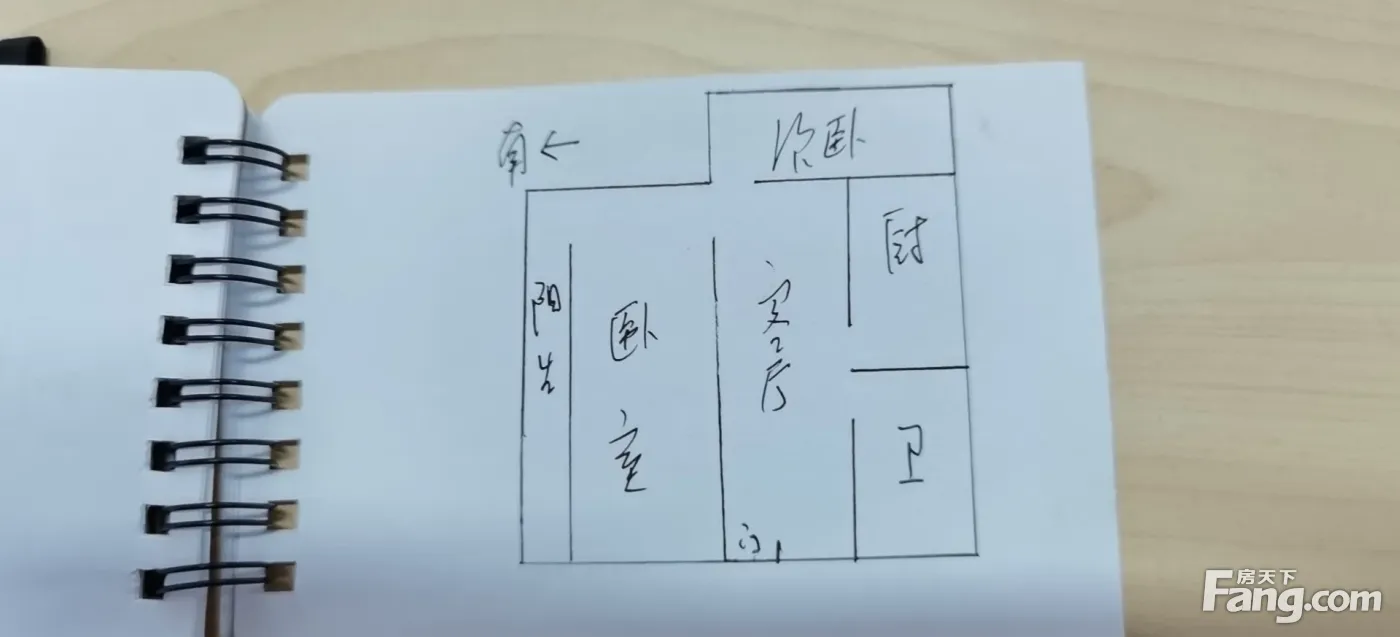 南←
次卧
厨
阳台
卧室
客厅
卫
门
房天下
Fang.com